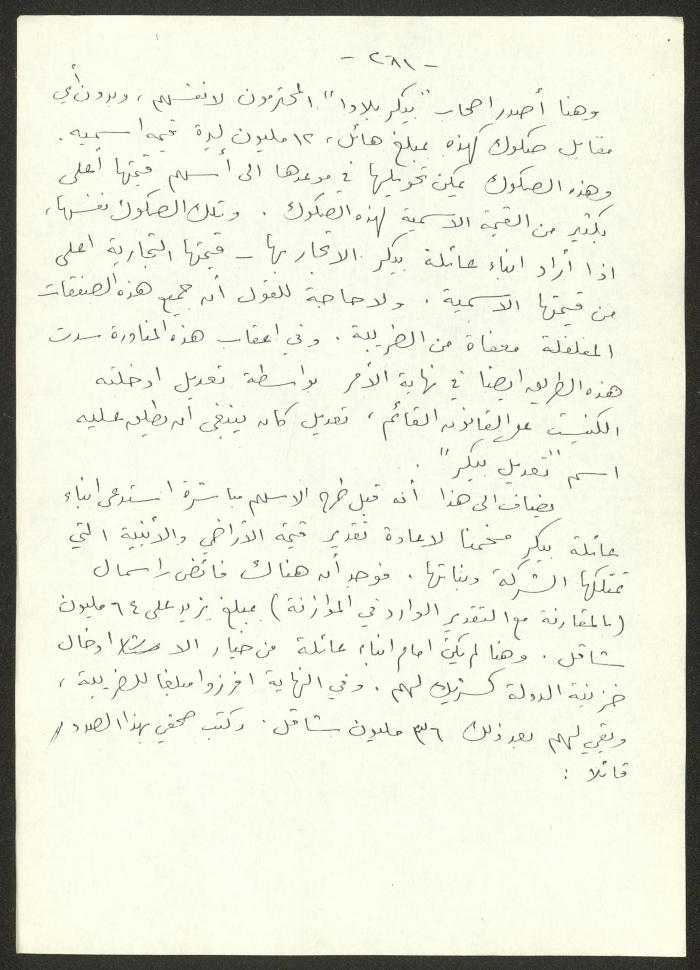 - ٢٨١ -
وهنا أصدر اصحاب "بيكر بلادا" المحترمون لانفسهم، وبدون أي
مقابل صكوك كهذه بمبلغ هائل، ١٢ مليون ليرة قيمة اسمية.
وهذه الصكوك يمكن تحويلها في موعدها الى أسهم قيمتها أعلى
بكثير من القيمة الاسمية لهذه الصكوك. وتلك الصكوك نفسها،
اذا أراد ابناء عائلة بيكر الاتجار بها - قيمتها التجارية اعلى
من قيمتها الاسمية. ولا حاجة للقول أن جميع هذه الصفقات
المغلفلة معفاة من الضريبة. وفي اعقاب هذه المناورة سدت
هذه الطريق ايضا في نهاية الأمر بواسطة تعديل ادخلته
الكنيست على القانون القائم، تعديل كان ينبغي أن يطلق عليه
اسم "تعديل بيكر".
يضاف الى هذا أنه قبل طرح الاسهم مباشرة استدعى ابناء
عائلة بيكر مخمنا لاعادة تقدير قيمة الأراضي والأبنية التي
تمتلكها الشركة وبناتها. فوجد أن هناك فائض راسمال
(بالمقارنة مع التقدير الوارد في الموازنة) بمبلغ يزيد على ٦٤ مليون
شاقل. وهنا لم يكن امام ابناء عائلة من خيار الا ادخال
خزينة الدولة كشريك لهم. وفي النهاية افرزوا مبلغا للضريبة،
وبقي لهم بعد ذلك ٣٦ مليون شاقل. وكتب صحفي بهذا الصدد
قائلا :